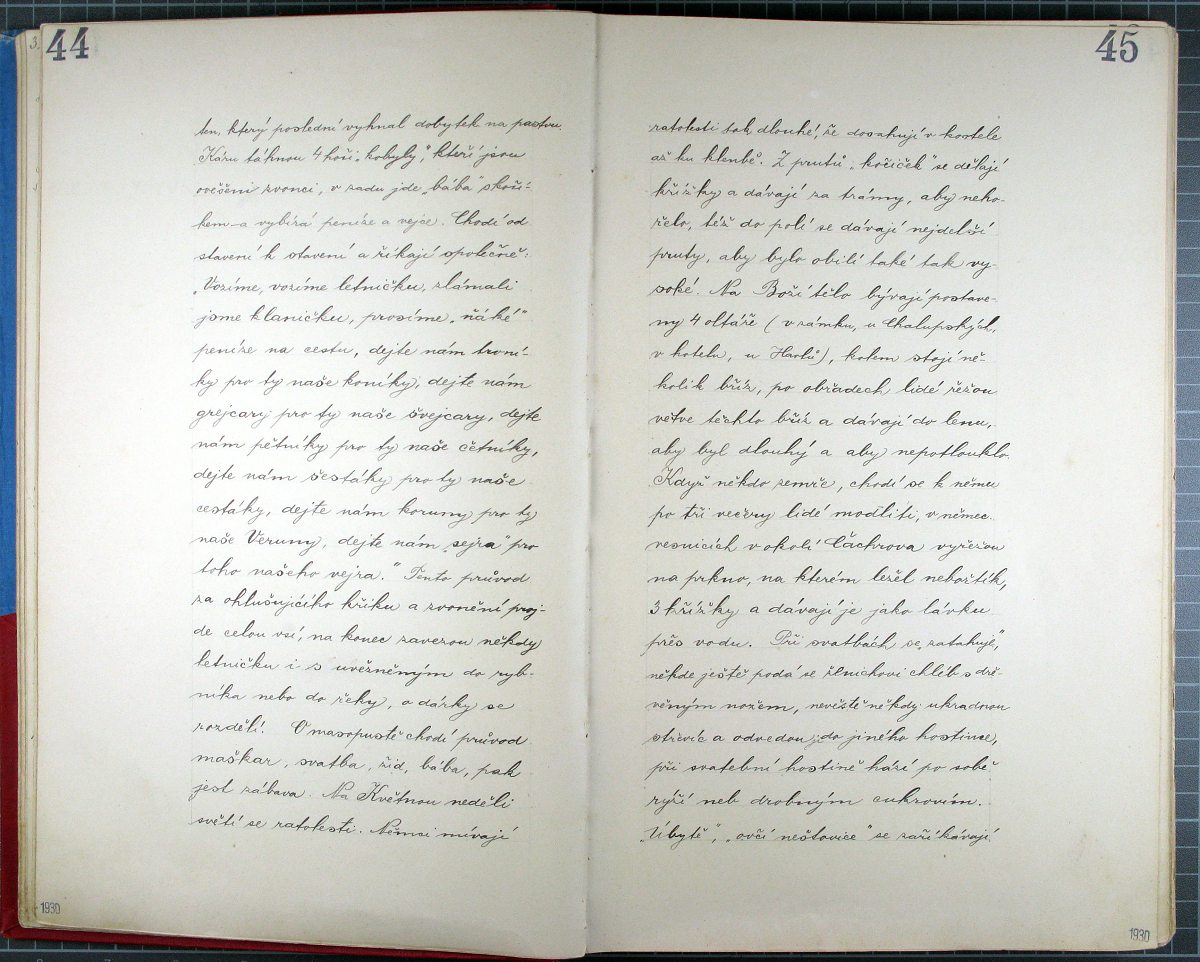 44
ten, který poslední vyhnal dobytek na pastvu.
Káru táhnou 4 hoši „kobyly“, kteří jsou
ověšeni zvonci, v zadu jde „bába“ s koší-
kem a vybírá peníze a vejce. Chodí od
stavení k stavení a říkají společně:
„Vozíme, vozíme letničku, zlámali
jsme klaničku, prosíme „ňáké“
peníze na cestu, dejte nám troní-
ky pro ty naše koníky, dejte nám
grejcary pro ty naše švejcary, dejte
nám pětníky pro ty naše četníky,
dejte nám šestáky pro ty naše
cestáky, dejte nám koruny pro ty
naše Veruny, dejte nám „sejra“ pro
toho našeho vejra.“ Tento průvod
za ohlušujícího křiku a zvonění proj-
de celou vsí, na konec zavezou někdy
letničku i s uvězněným do ryb-
níka nebo do řeky, a dárky se
rozdělí. O masopustě chodí průvod
maškar, svatba, žid, bába, pak
jest zábava. Na Květnou neděli
světí se ratolesti. Němci mívají
1930
45
ratolesti tak dlouhé, že dosahují v kostele
až ku klenbě. Z prutů „kočiček“ se dělají
křížky a dávají za trámy, aby neho-
řelo, též do polí se dávají nejdelší
pruty, aby bylo obilí také tak vy-
soké. Na Boží tělo bývají postave-
ny 4 oltáře (v zámku, u Chalupských,
v hotelu, u Hartů), kolem stojí ně-
kolik bříz, po obřadech lidé řežou
větve těchto bříz a dávají do lenu,
aby byl dlouhý a aby nepotlouklo.
Když někdo zemře, chodí se k němu
po tři večery lidé modliti, v němec.
vesnicích v okolí Čachrova vyřežou
na prkno, na kterém ležel nebožtík,
3 křížky a dávají je jako lávku
přes vodu. Při svatbách se „zatahuje“,
někde ještě podá se ženichovi chléb s dře-
věným nožem, nevěstě někdy ukradnou
střevíc a odvedou ji do jiného hostince,
při svatební hostině hází po sobě
rýží neb drobným cukrovím.
„Úbytě“, „ovčí neštovice“ se zaříkávají
1930